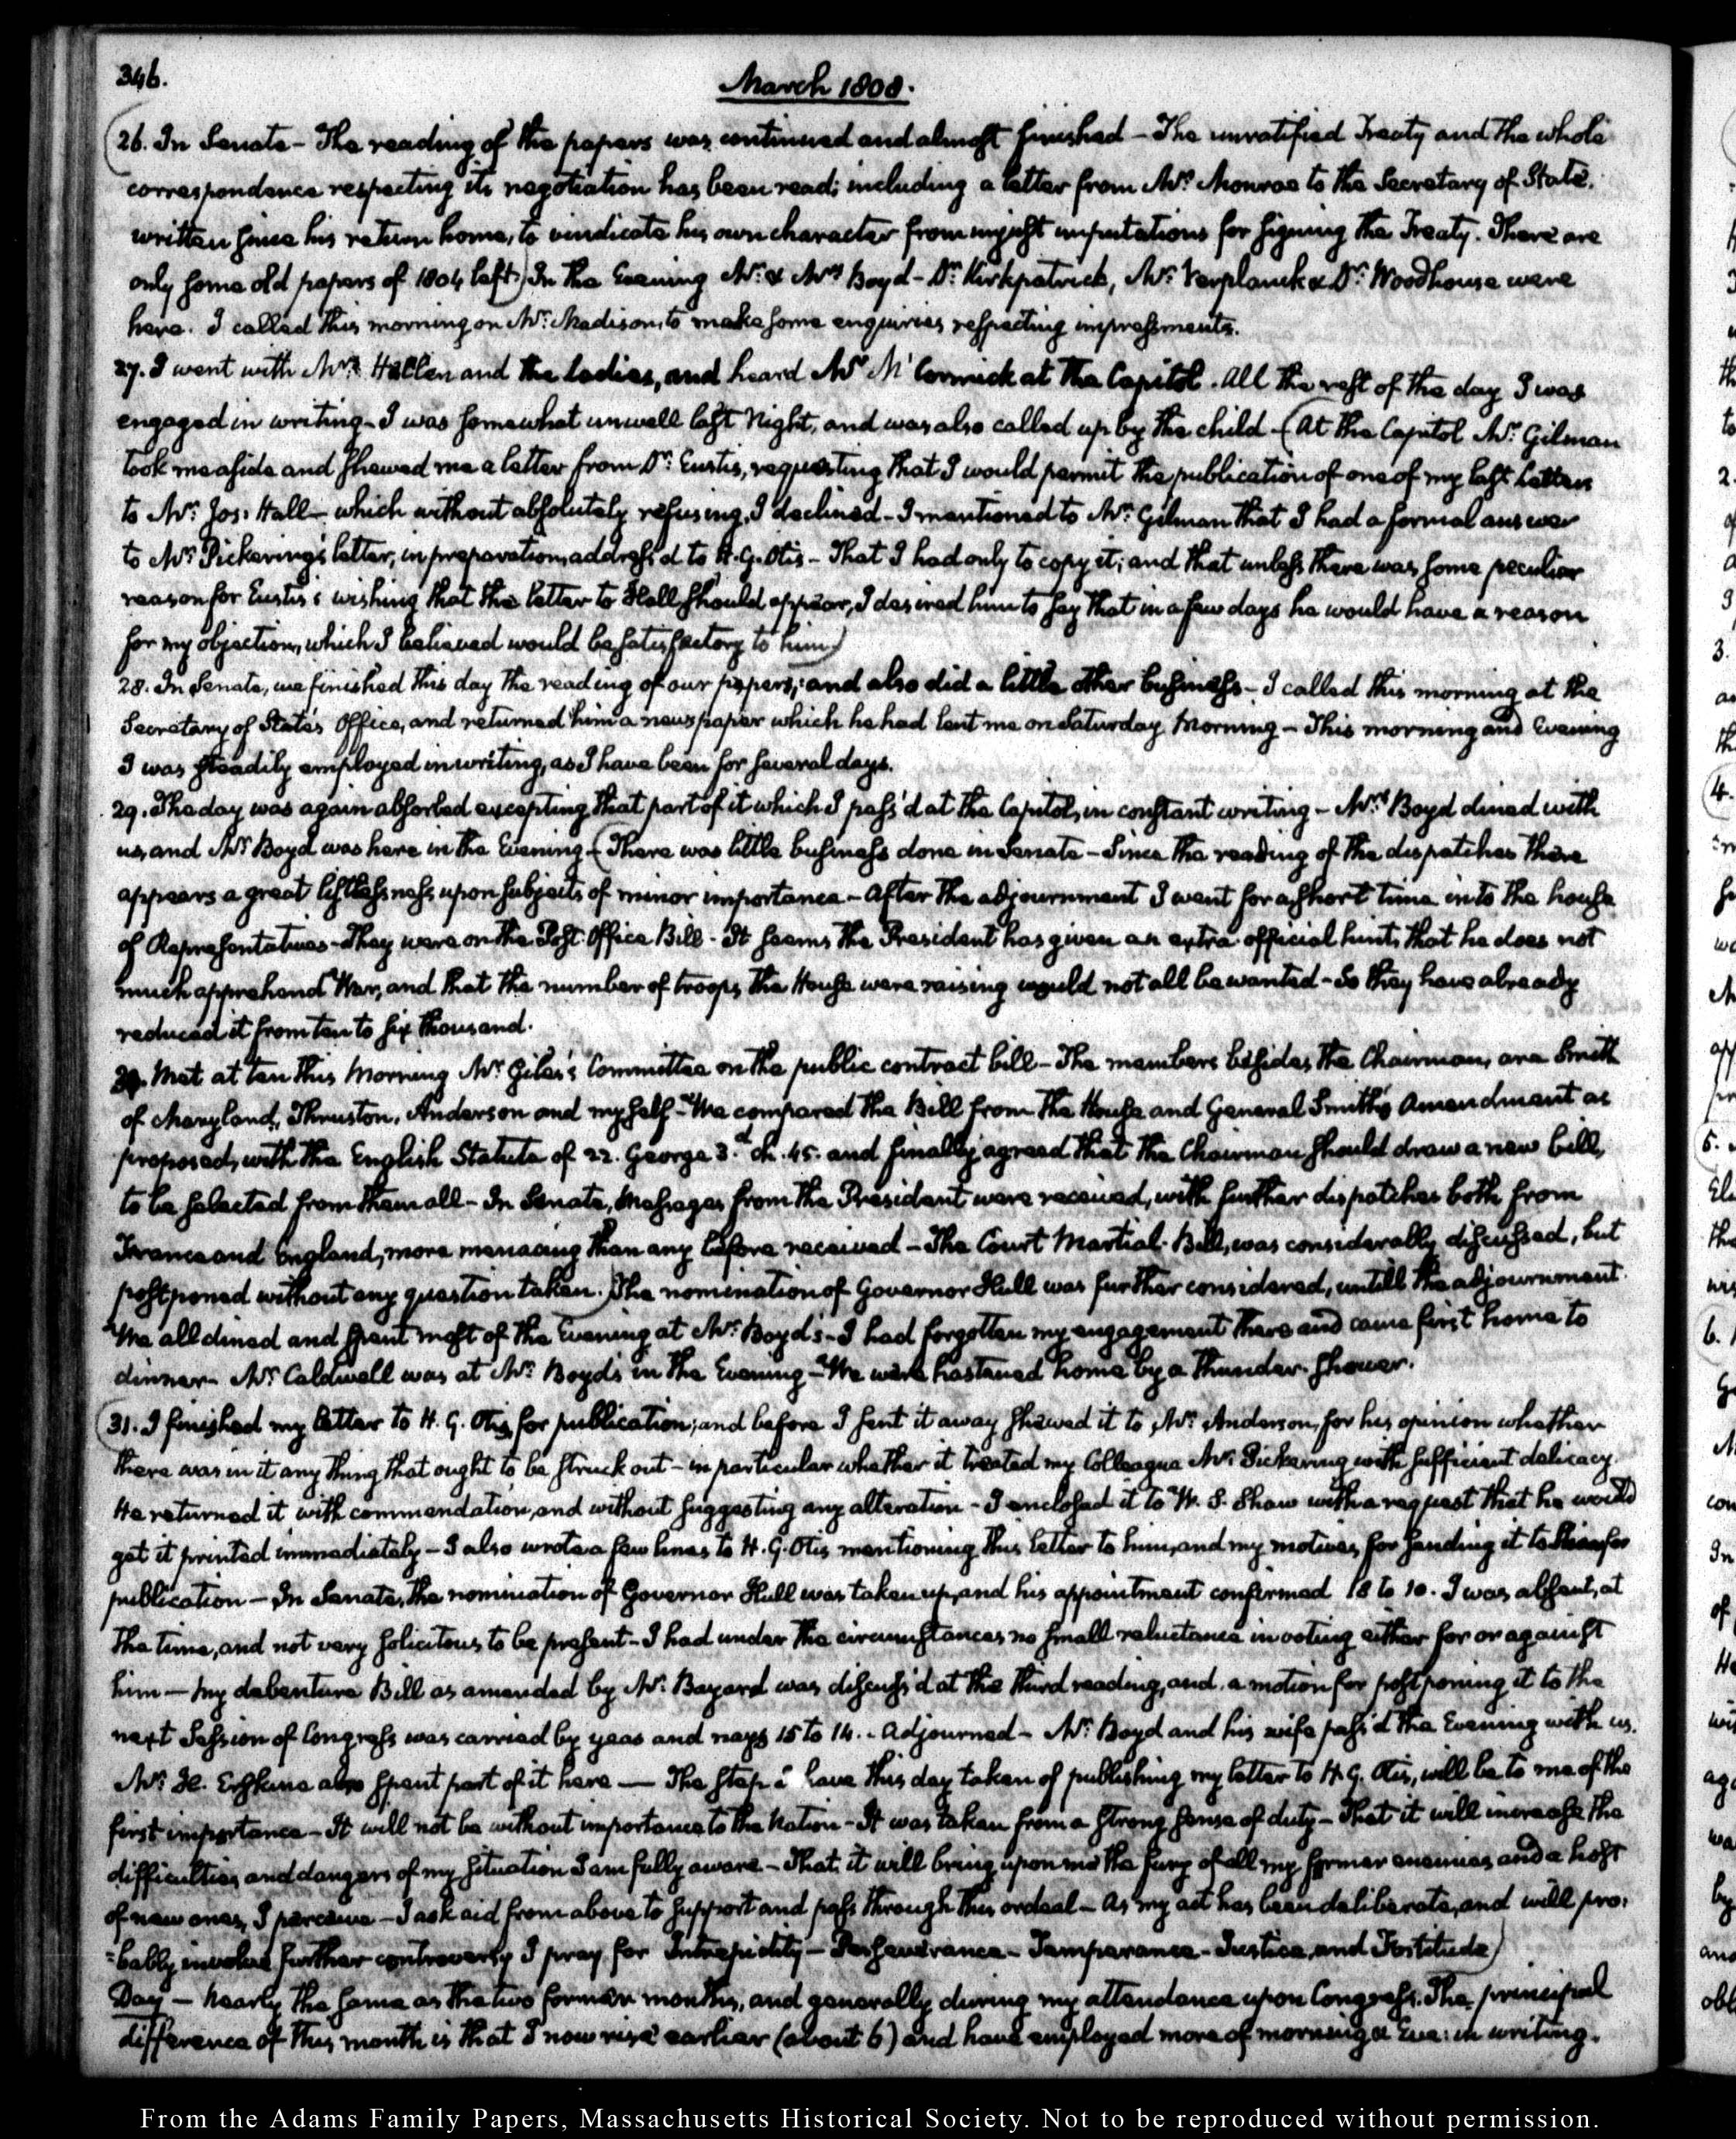 346.
March 1808.
26. In Senate - The reading of the papers was continued and almost finished - The unratified Treaty and the whole
correspondence respecting its negotiation has been read; including a letter from Mr. Monroe to the Secretary of State.
written since his return home, to vindicate his own character from unjust imputations for signing the Treaty. There are
only some old papers of 1804 left.) In the Evening Mr. & Mrs. Boyd - Dr. Kirkpatrick, Mr. Verplanck & Dr. Woodhouse were
here. I called this morning on Mr. Madison, to make some enquiries respecting impressments.
27. I went with Mrs. Hellen and the ladies, and heard Mr. McCormick at the Capitol. All the rest of the day I was
engaged in writing - I was somewhat unwell last Night, and was also called up by the child - (At the Capitol Mr. Gilman
took me aside and shewed me a letter from Dr. Eustis, requesting that I would permit the publication of one of my last letters
to Mr. Jos: Hall - which without absolutely refusing, I declined - I mentioned to Mr. Gilman that I had a formal answer
to Mr. Pickering's letter, in preparation, address'd to H. G. Otis - That I had only to copy it; and that unless there was some peculiar
reason for Eustis's wishing that the letter to Hall should appear, I desired him to say that in a few days he would have a reason
for my objection, which I believed would be satisfactory to him)
28. In Senate, we finished this day the reading of our papers; and also did a little other business - I called this morning at the
Secretary of State's Office, and returned him a newspaper which he had lent me on Saturday Morning - This morning and Evening
I was steadily employed in writing, as I have been for several days.
29. The day was again absorbed excepting that part of it which I pass'd at the Capitol, in constant writing - Mrs. Boyd dined with
us, and Mr. Boyd was here in the Evening - (There was little business done in Senate - Since the reading of the dispatches there
appears a great listlessness upon subjects of minor importance - After the adjournment I went for a short time into the house
of Representatives - They were on the Post-Office Bill - It seems the President has given an extra official hint, that he does not
much apprehend War, and that the number of troops the House were raising would not all be wanted - So they have already
reduced it from ten to six thousand.
30. Met at ten this Morning Mr. Giles's Committee on the public contract bill - The members besides the Chairman, are Smith
of Maryland, Thruston, Anderson and myself - We compared the Bill from the House and General Smith's Amendment as
proposed, with the English Statute of 22. George 3.d ch. 45. and finally agreed that the Chairman should draw a new bill,
to be selected from them all - In Senate, Messages from the President were received, with further dispatches both from
France and England, more menacing than any before received - The Court Martial Bill, was considerably discussed, but
postponed without any question taken.) The nomination of Governor Hull was further considered, untill the adjournment.
We all dined and spent most of the Evening at Mr. Boyd's - I had forgotten my engagement there and came first home to
dinner - Mr. Caldwell was at Mr. Boyd's in the Evening - We were hastened home by a Thunder-shower.
(31. I finished my letter to H. G. Otis, for publication; and before I sent it away shewed it to Mr. Anderson, for his opinion whether
there was in it any thing that ought to be struck out - in particular whether it treated my Colleague Mr. Pickering with sufficient delicacy.
He returned it with commendation, and without suggesting any alteration - I enclosed it to W. S. Shaw with a request that he would
get it printed immediately - I also wrote a few lines to H. G. Otis mentioning this letter to him, and my motives for sending it to Shaw for
publication - In Senate, the nomination of Governor Hull was taken up, and his appointment confirmed 18 to 10. I was absent, at
the time, and not very solicitous to be present - I had under the circumstances no small reluctance in voting either for or against
him - My debenture Bill as amended by Mr. Bayard was discuss'd at the third reading, and a motion for postponing it to the
next Session of Congress was carried by yeas and nays 15 to 14. - Adjourned - Mr. Boyd and his wife pass'd the Evening with us.
Mr. H. Erskine also spent part of it here - The step I have this day taken of publishing my letter to H. G. Otis, will be to me of the
first importance - It will not be without importance to the Nation - It was taken from a strong sense of duty - That it will increase the
difficulties and dangers of my situation I am fully aware - That it will bring upon me the fury of all my former enemies and a host
of new ones, I perceive - I ask aid from above to support and pass through this ordeal - As my act has been deliberate, and will pro:
:bably involve further controversy I pray for Intrepidity - Perseverance - Temperance - Justice, and Fortitude)
Day - Nearly the same as the two former months, and generally during my attendance upon Congress. The principal
difference of this month is that I now rise earlier (about 6) and have employed more of morning & Eve: in writing.
From the Adams Family Papers, Massachusetts Historical Society. Not to be reproduced without permission.